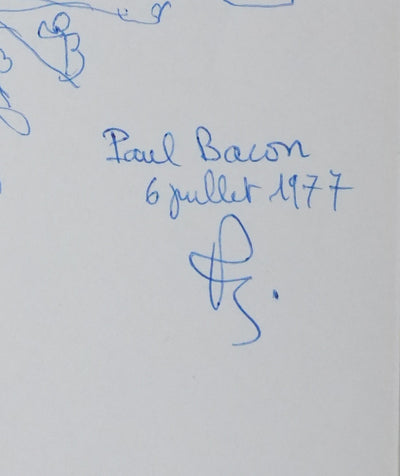 Paul Bacon
6 juillet 1977